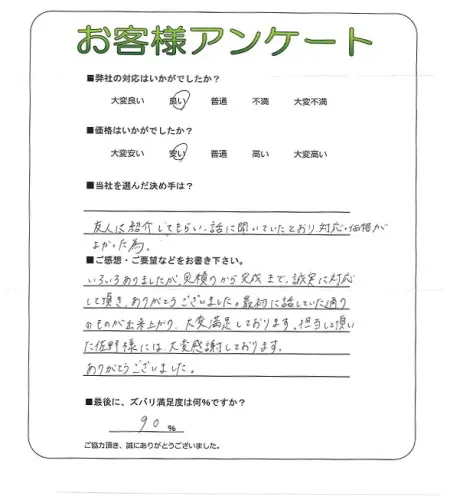 お客様アンケート
■弊社の対応はいかがでしたか?
大変良い 良い 普通 不満 大変不満
■価格はいかがでしたか?
大変安い 安い 普通 高い 大変高い
■当社を選んだ決め手は?
友人に紹介してもらい、話に聞いていたとおり対応・価格が
よかった為。
■ご感想・ご要望などをお書き下さい。
いろいろありましたが、見積りから完成まで、誠実に対応
して頂き、ありがとうございました。最初に話していた通り
のものが出来上がり、大変満足しております。担当して頂い
た佐野様には、大変感謝しております。
ありがとうございました。
■最後に、ズバリ満足度は何%ですか?
90 %
ご協力頂き、誠にありがとうございました。